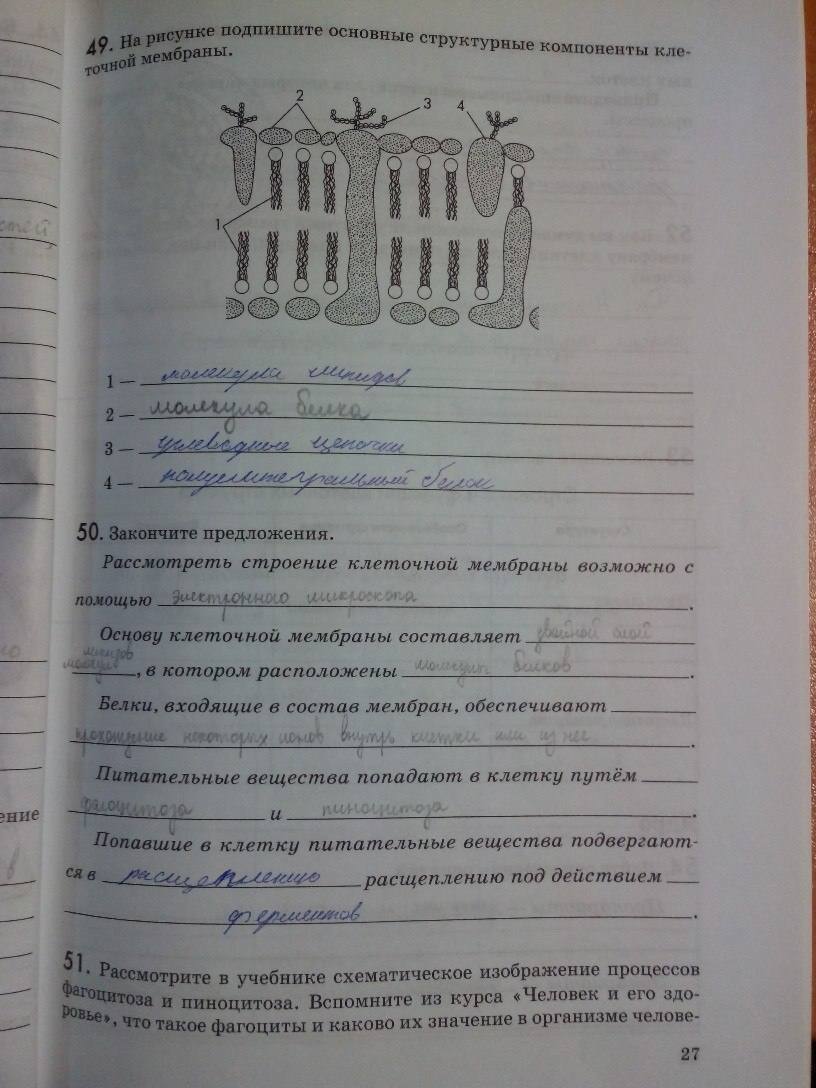 49. На рисунке подпишите основные структурные компоненты кле-
точной мембраны.
2 3 4
1
1 — молекула липидов
2 — молекула белка
3 — углеводные цепочки
4 — полуинтегральный белок
50. Закончите предложения.
Рассмотреть строение клеточной мембраны возможно с
помощью электронного микроскопа.
Основу клеточной мембраны составляет двойной слой
липидов
молекул, в котором расположены молекулы белков.
Белки, входящие в состав мембран, обеспечивают
прохождение некоторых ионов внутрь клетки или из нее.
Питательные вещества попадают в клетку путём
фагоцитоза и пиноцитоза.
Попавшие в клетку питательные вещества подвергают-
ся в расщеплению расщеплению под действием
ферментов.
51. Рассмотрите в учебнике схематическое изображение процессов
фагоцитоза и пиноцитоза. Вспомните из курса «Человек и его здо-
ровье», что такое фагоциты и каково их значение в организме челове-
27
ение